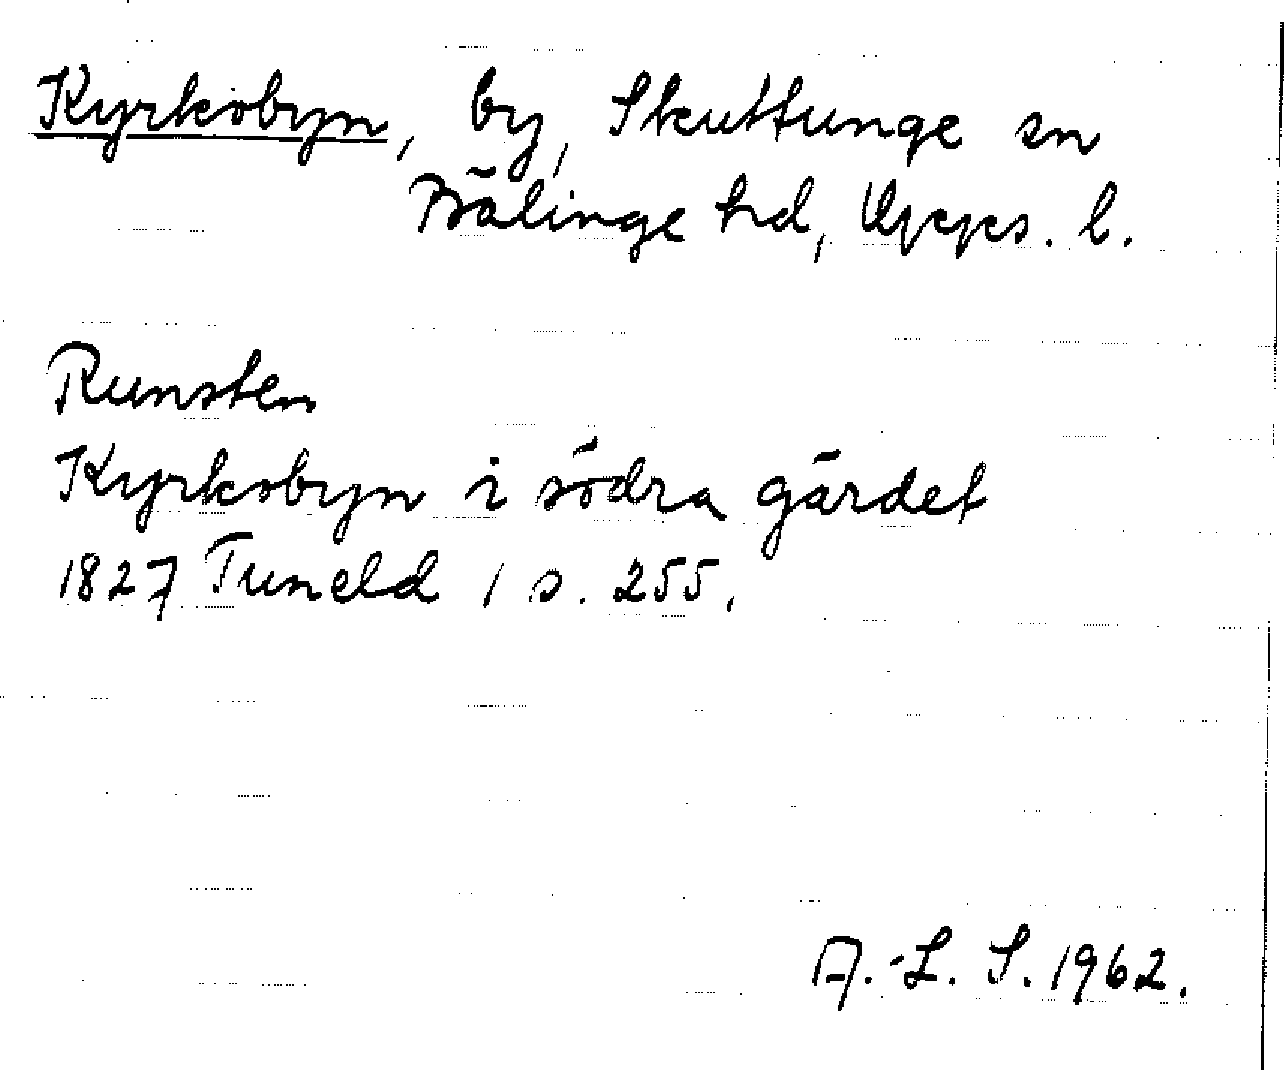 Kyrkobyn, by, Skuttunge sn
Bälinge hd, Upps. l.
Runsten
Kyrkobyn i södra gärdet
1827 Tuneld 1 s. 255.
A.-L. S. 1962.